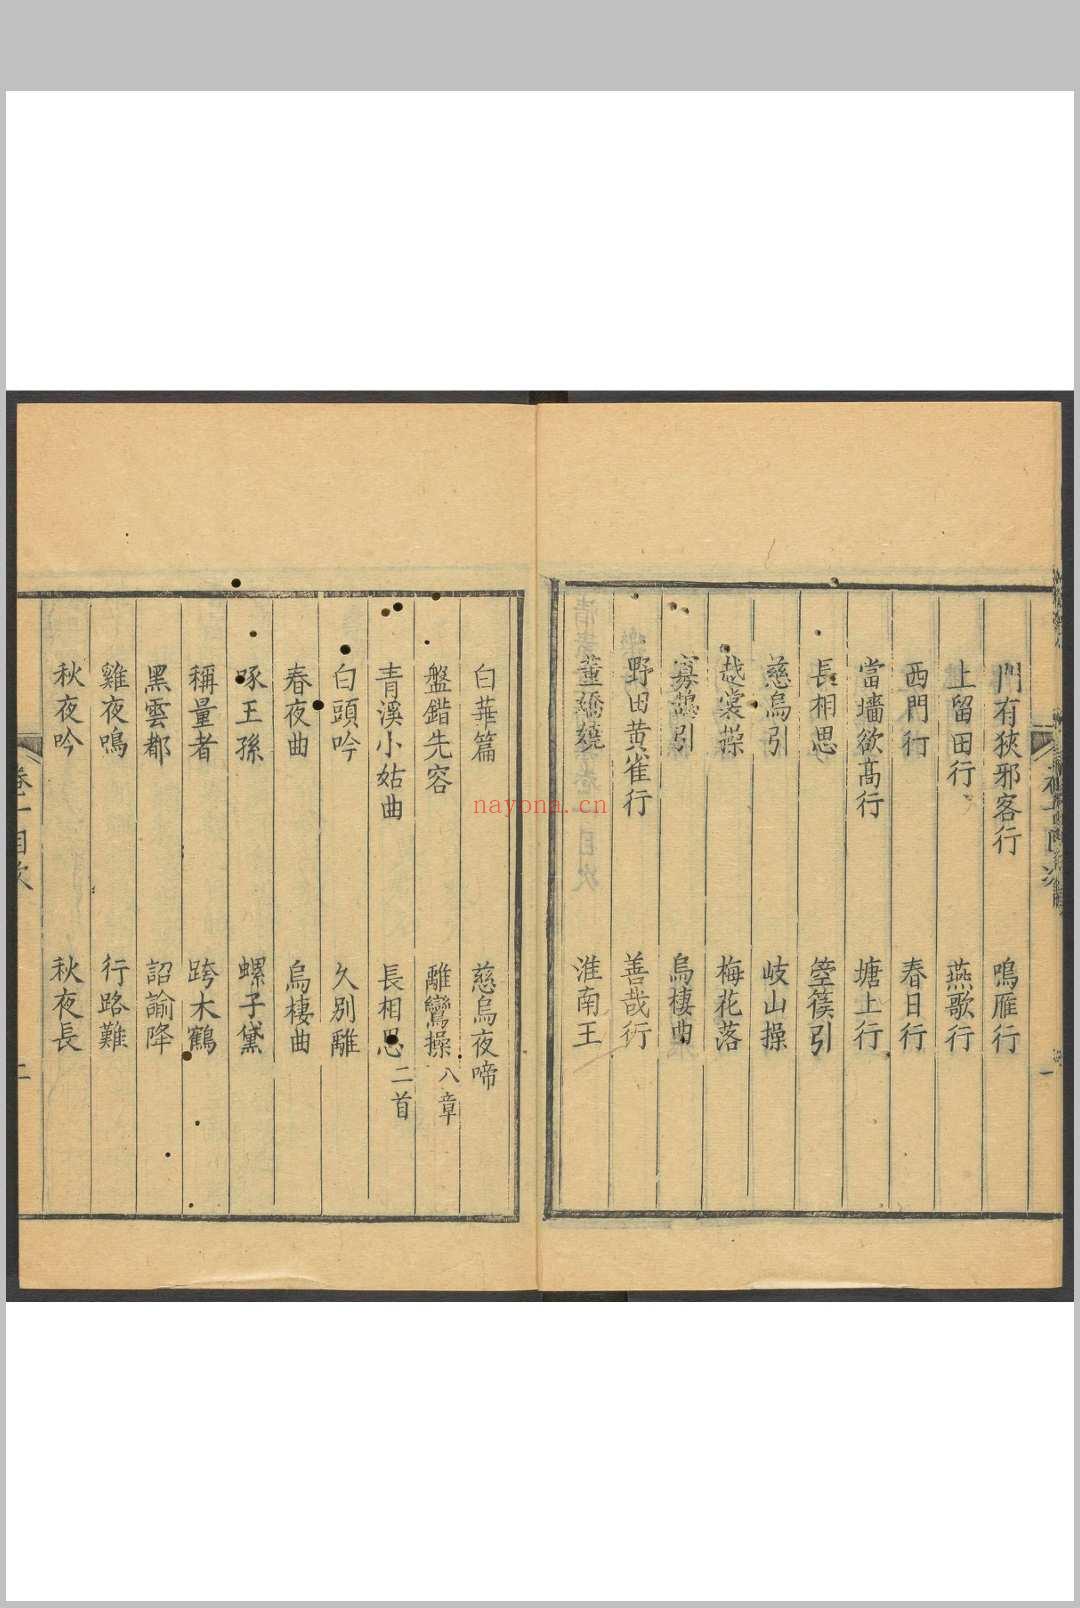 門有狹邪客行　鳴雁行
上留田行　燕歌行
西門行　春日行
當墻欲髙行　塘上行
長相思　箜篌引
慈烏引　岐山操
越裳操　梅花落
寡鵠引　烏棲曲
野田黄雀行　善哉行
董嬌嬈　淮南王
白華篇　慈烏夜啼
盤錯先容　離鸞操八章
青溪小姑曲　長相思二首
白頭吟　久別離
春夜曲　烏棲曲
啄王孫　螺子黛
稱量者　跨木鶴
黑雲都　詔諭降
雞夜鳴　行路難
秋夜吟　秋夜長
卷一目次　二
nayona.cn